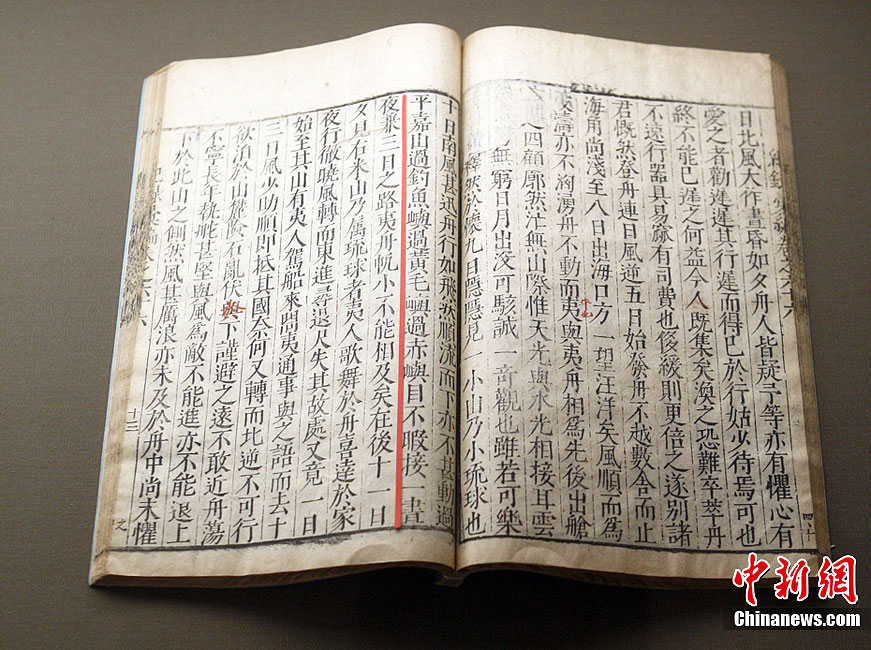 日北風大作晝昏如夕舟人皆疑予等亦有懼心有
愛之者勸遲遲其行遲而得已於行姑少待焉可也
終不能已遲之何益今人既集矣渙之恐難卒萃舟
不遠行器具易窳有司費也俊緩則更倍之遂別諸
君慨然登舟連日風逆五日始發舟不越數舍而止
海角尚淺至八日出海口方一望汪洋矣風順而為
波濤亦不洶湧舟不動而夷與夷舟相為先後出艙
四顧廓然茫無山際惟天光與水光相接耳雲
無窮日月出沒可駭誠一奇觀也雖若可樂
釋然於懷九日隱隱見一小山乃小琉球也
十日南風甚迅舟行如飛然順流而下亦不甚動過
平嘉山過釣魚嶼過黃毛嶼過赤嶼目不暇接一晝
夜兼三日之路夷舟帆小不能相及矣在後十一日
夕見古米山乃屬琉球者夷人歌舞於舟喜達於家
夜行徹曉風轉而東進尋退尺失其故處又竟一日
始至其山有夷人駕船來問夷通事與之語而去十
三日風少助順即抵其國奈何又轉而北逆不可行
欲泊於山麓險石亂伏與下謹避之遠不敢近舟蕩
不寧長年執舵甚堅與風為敵不能進亦不能退上
下於此山之側然風甚厲浪亦未及於舟中尚未懼
十三
中新網
Chinanews.com